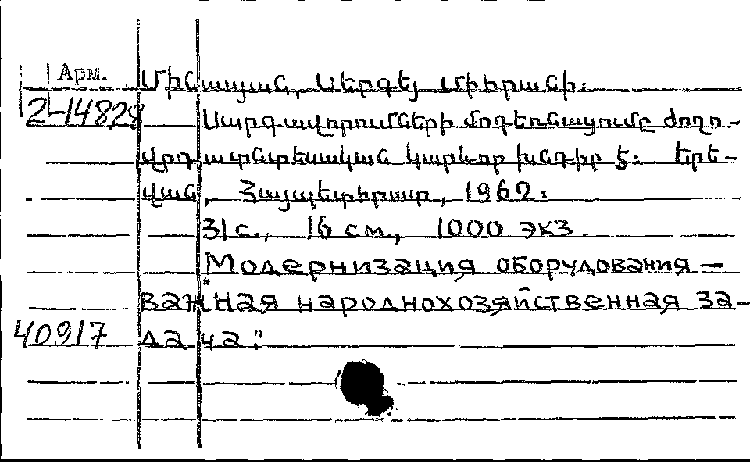 Арм.
Մինասյան, Սերգեյ Միհրանի:
2-14828
Սարգավորումների մոդեռնացումը ժողո-
վրդատնտեսական կարևոր խնդիր է: Երե-
վան, Հայպետհրատ, 1962:
31 с., 16 см, 1000 экз.
"Модернизация оборудования –
важная народнохозяйственная за-
40917 дача".